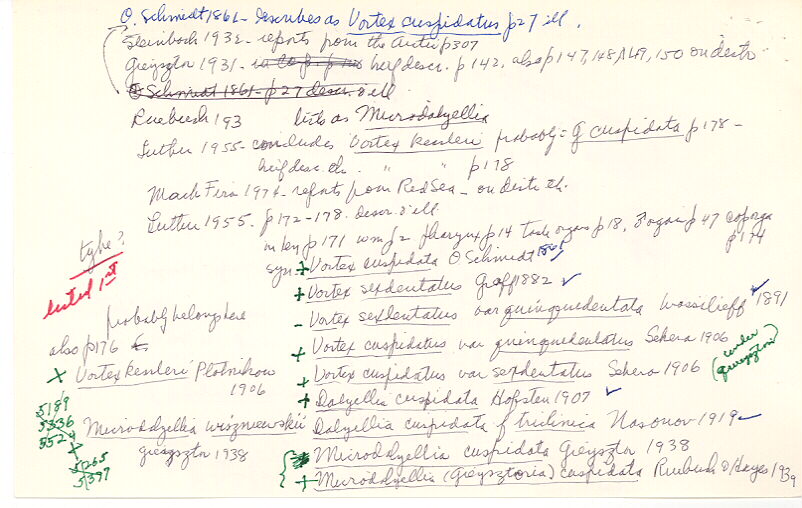 O. Schmidt 1861 - describes as Vortex cuspidatus p27 ill.
Steinböck 1932 - reports from the Arctic p307
Gieysztor 1931 - brief descr. p 142, also p 147, 148, 149, 150 on distr
O Schmidt 1861 - p 27 descr. & ill
Ruebush 193 lists as Microdalyellia
Luther 1955 - concludes Vortex kessleri probably = G cuspidata p178 -
brief desc. th. " " p178
Mack Fira 1974 - reports from Red Sea - on distr th.
Luther 1955 - p172-178. descr. & ill
in key p 171 pharynx p14 p18, p 47 cop orgs
p174
type?
listed 1st
syn + Vortex cuspidata O Schmidt 1861
+ Vortex sexdentatus Graff 1882 ✓
- Vortex sexdentatus var quinquedentata Wassilieff 1891 ✓
+ Vortex cuspidatus var quinquedentatus Sekera 1906
+ Vortex cuspidatus var sexdentatus Sekera 1906 (under gieysztori)
+ Dalyellia cuspidata Hofsten 1907 ✓
Dalyellia cuspidata f triclinica Nasonov 1919 ✓
Microdalyellia cuspidata Gieysztor 1938
+ Microdalyellia (Gieysztoria) cuspidata Ruebush & Hayes 1939
probably belongs here
also p176
+ Vortex kessleri Plotnikow
1906
5189
5336
552
Microdalyellia wiszniewskii
+ Gieysztor 1938
5265
5397